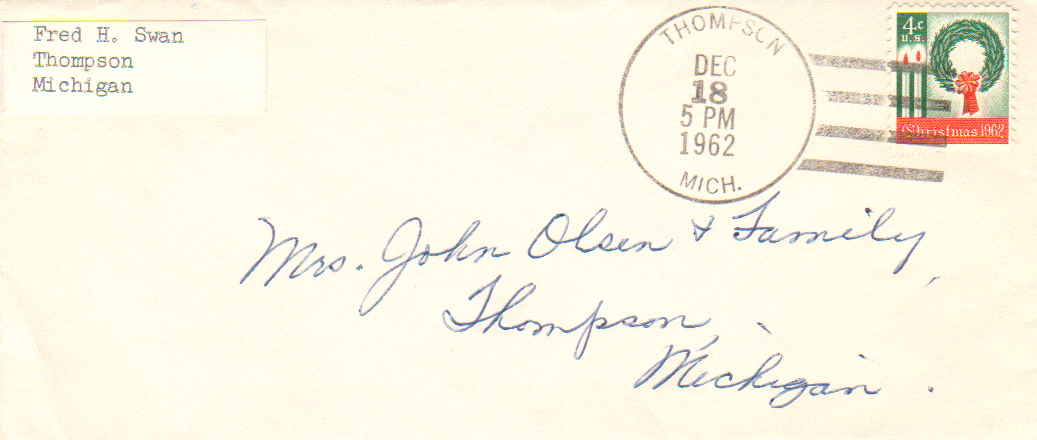 Fred H. Swan
Thompson
Michigan
THOMPSON
DEC
18
5 PM
1962
MICH.
4c
U.S.
Christmas 1962
Mrs. John Olsen & Family,
Thompson,
Michigan.